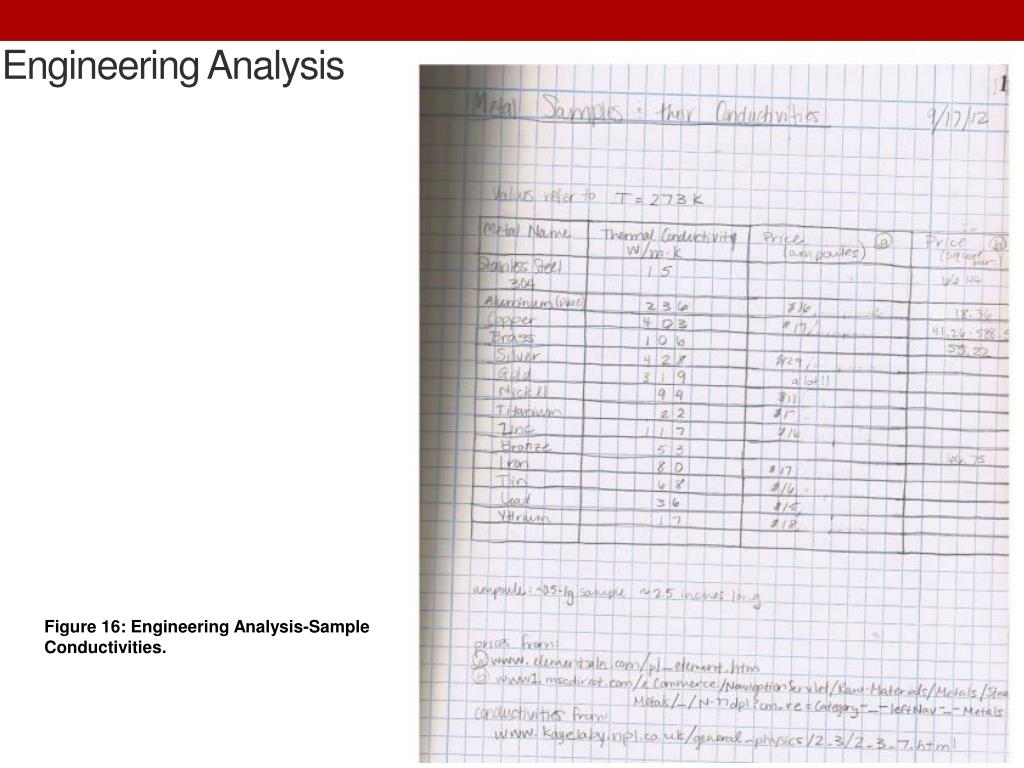 Engineering Analysis
1
Metal Samples : their Conductivities 9/17/12
Values refer to T = 273 K
Metal Name Thermal Conductivity Price (a) Price (b)
W/m·K (ampoules) (square bars)
Stainless Steel 15
304
Aluminum (pure) 236 $16 18.36
Copper 403 $17/ 41.26-588.5
Brass 106 53.22
Silver 428 $29/
Gold 319 a lot!!
Nickel 94 $17
Titanium 22 $17
Zinc 117 $16
Bronze 53
Iron 80 $17
Tin 68 $16
Lead 36 $15
Yttrium 17 $18
ampoule: ~0.5-1g sample ~2.5 inches long
Figure 16: Engineering Analysis-Sample
Conductivities.
prices from:
(a) www.elementsales.com/pl_element.htm
(b) www1.mscdirect.com/eCommerce/NavigationServlet/Raw-Materials/Metals/Stea
Metals/_/N-77dpl?cm_re=Category-_-leftNav-_-Metals
conductivities from:
www.kayelaby.npl.co.uk/general_physics/2_3/2_3_7.html